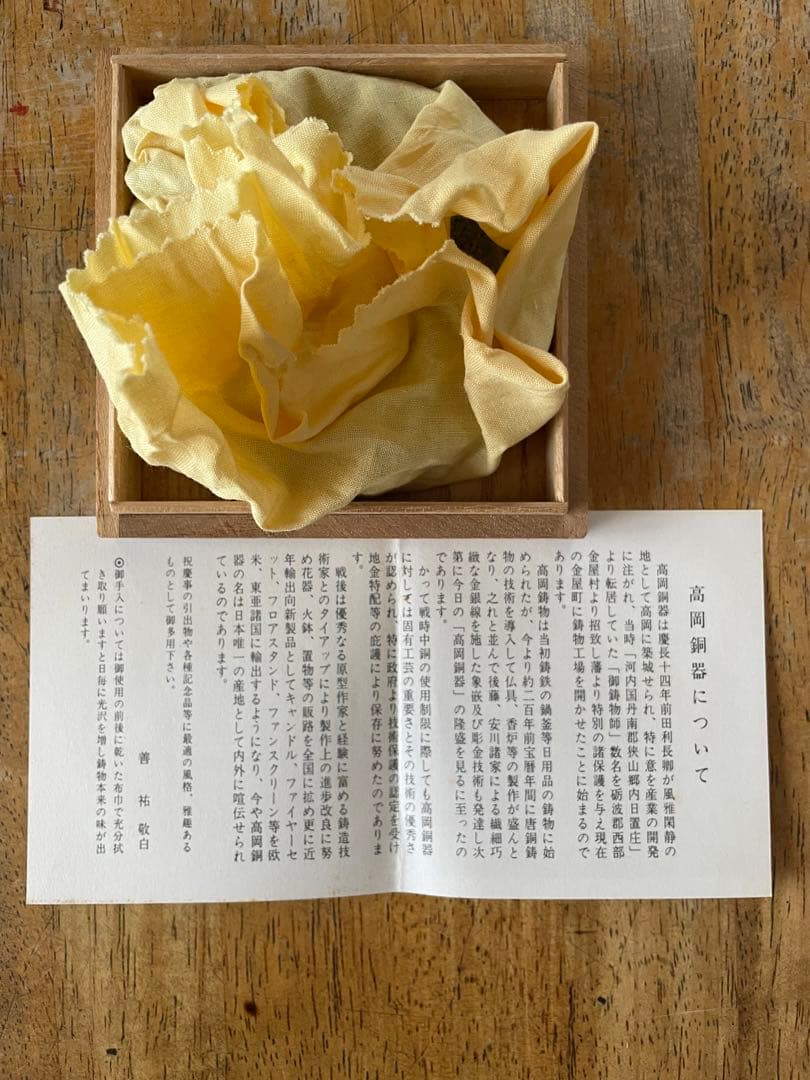 高岡銅器について
高岡銅器は慶長十四年前田利長卿が風雅閑静の
地として高岡に築城せられ、特に意を産業の開発
に注がれ、当時「河内国丹南郡狭山郷内日置庄」
より転居していた「御鋳物師」数名を砺波郡西部
金屋村より招致し藩より特別の諸保護を与え現在
の金屋町に鋳物工場を開かせたことに始まるので
あります。
高岡鋳物は当初鋳鉄の鍋釜等日用品の鋳物に始
められたが、今より約二百年前宝暦年間に唐銅鋳
物の技術を導入して仏具、香炉等の製作が盛んと
なり、之れと並んで後藤、安川諸家による繊細巧
緻な金銀線を施した象嵌及び彫金技術も発達し次
第に今日の「高岡銅器」の隆盛を見るに至ったの
であります。
かって戦時中銅の使用制限に際しても高岡銅器
に対しては固有工芸の重要さとその技術の優秀さ
が認められ、特に政府より技術保護の認定を受け
地金特配等の庇護により保存に努めたのでありま
す。
戦後は優秀なる原型作家と経験に富める鋳造技
術家とのタイアップにより製作上の進歩改良に努
め花器、火鉢、置物等の販路を全国に拡め更に近
年輸出向新製品としてキャンドル、ファイヤーセ
ット、フロアスタンド、ファンスクリーン等を欧
米、東亜諸国に輸出するようになり、今や高岡銅
器の名は日本唯一の産地として内外に喧伝せられ
ているのであります。
祝慶事の引出物や各種記念品等に最適の風格、雅趣ある
ものとして御多用下さい。
善祐敬白
◎御手入については御使用の前後に乾いた布巾で充分拭
き取り願いますと日毎に光沢を増し鋳物本来の味が出
てまいります。